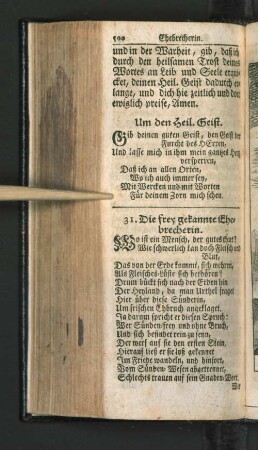 500 Ehebrecherin.
und in der Warheit, gib, daß ich
durch den heilsamen Trost deines
Wortes an Leib und Seele erqui-
cket, deinen Heil. Geist dadurch er-
lange, und dich hie zeitlich und dort
ewiglich preise, Amen.
Um den Heil. Geist.
Gib deinen guten Geist, den Geist der
Furcht des HErren,
Und lasse mich in ihm mein gantzes Hertz
versperren,
Daß ich an allen Orten,
Wo ich auch immer sey,
Mit Wercken und mit Worten
Für deinem Zorn mich scheu.
31. Die frey gekannte Ehe-
brecherin.
Wo ist ein Mensch, der gutes thut?
Wie schwerlich kan doch Fleisch und
Blut,
Das von der Erde kommt, sich wehren,
Als Fleisches-Lüste sich bethören?
Drum bückt sich nach der Erden hin
Der Heyland, da man Urthel fraget
Hier über diese Sünderin,
Um frischen Ehbruch angeklaget.
Ja darum spricht er diesen Spruch:
Wer Sünden-frey und ohne Bruch,
Und sich befindet rein zu seyn,
Der werf auf sie den ersten Stein.
Hierauf ließ er sie loß gekennet
Im Friede wandeln, und hinfort,
Vom Sünden-Wesen abgetrennet,
Schlechts trauen auf sein Gnaden-Wort.